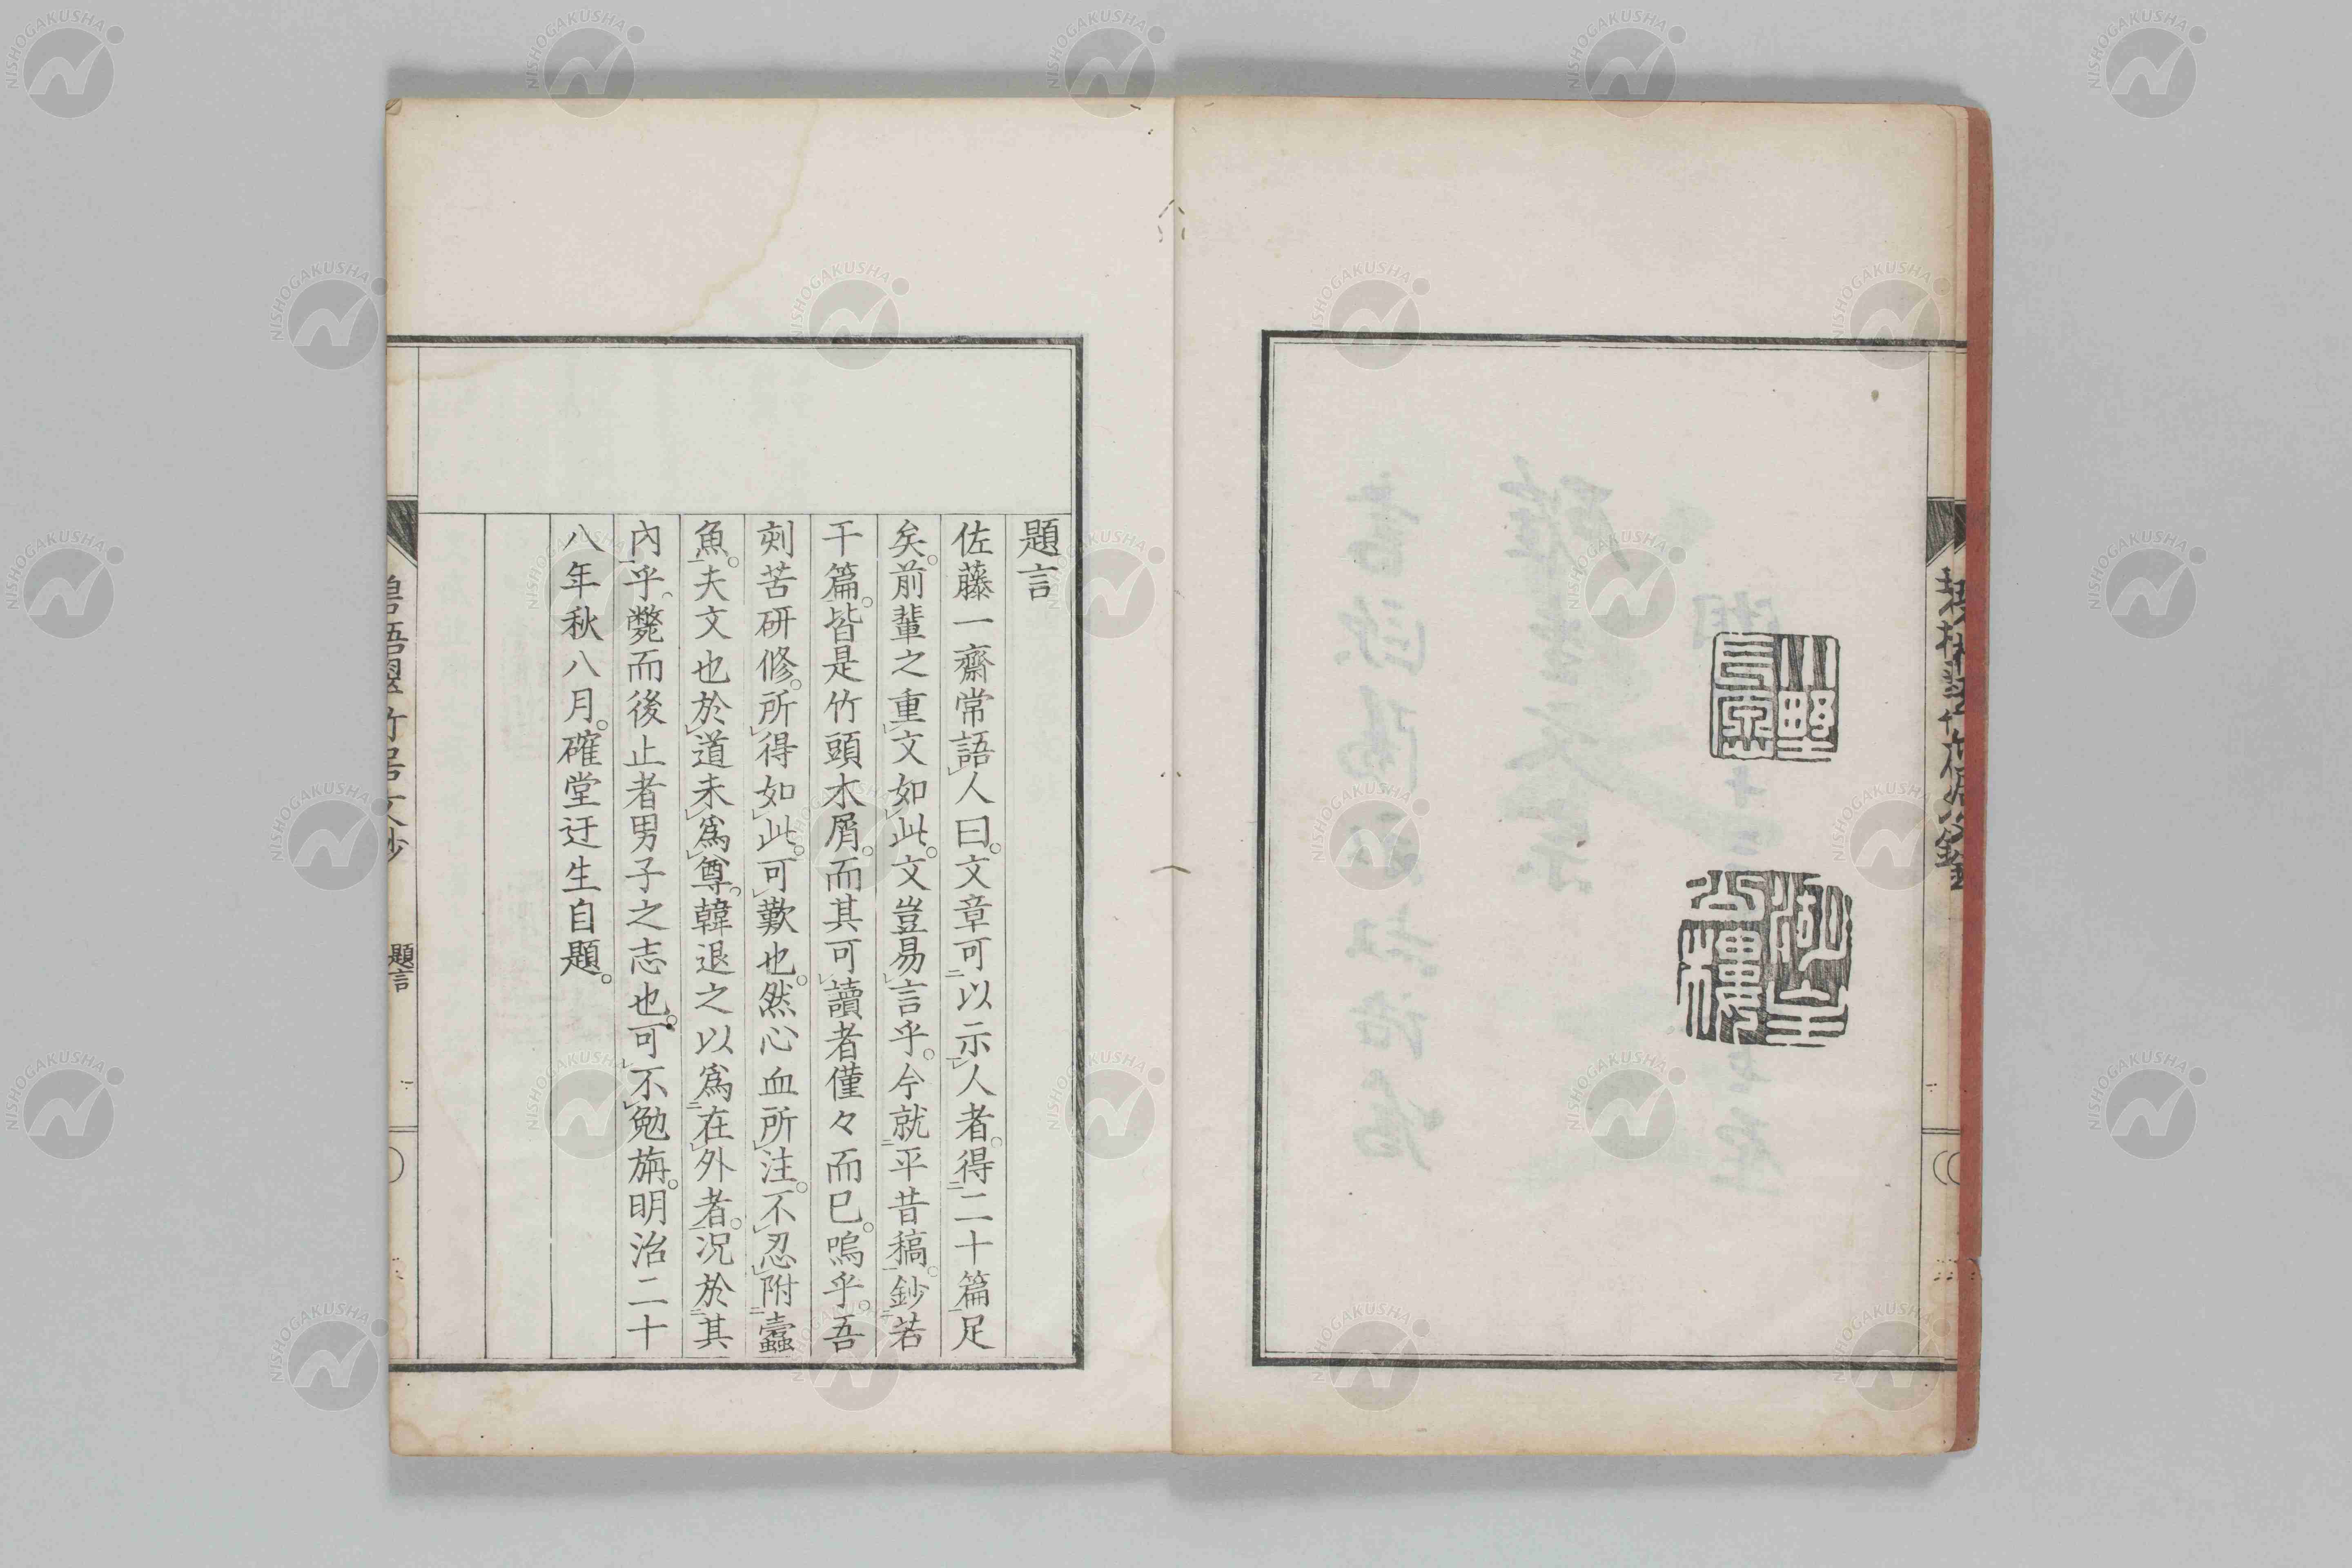 題言
佐藤一齋常語人曰。文章可以示人者。得二十篇足
矣。前輩之重文如此。文豈易言乎。今就平昔稿。鈔若
干篇。皆是竹頭木屑。而其可讀者僅々而已。嗚乎。吾
刻苦研修。所得如此。可歎也。然心血所注。不忍附蠹
魚。夫文也於道未爲尊。韓退之以爲在外者。況於其
內乎。斃而後止者男子之志也。可不勉旃。明治二十
八年秋八月。確堂迂生自題。
題言
NISHOGAKUSHA